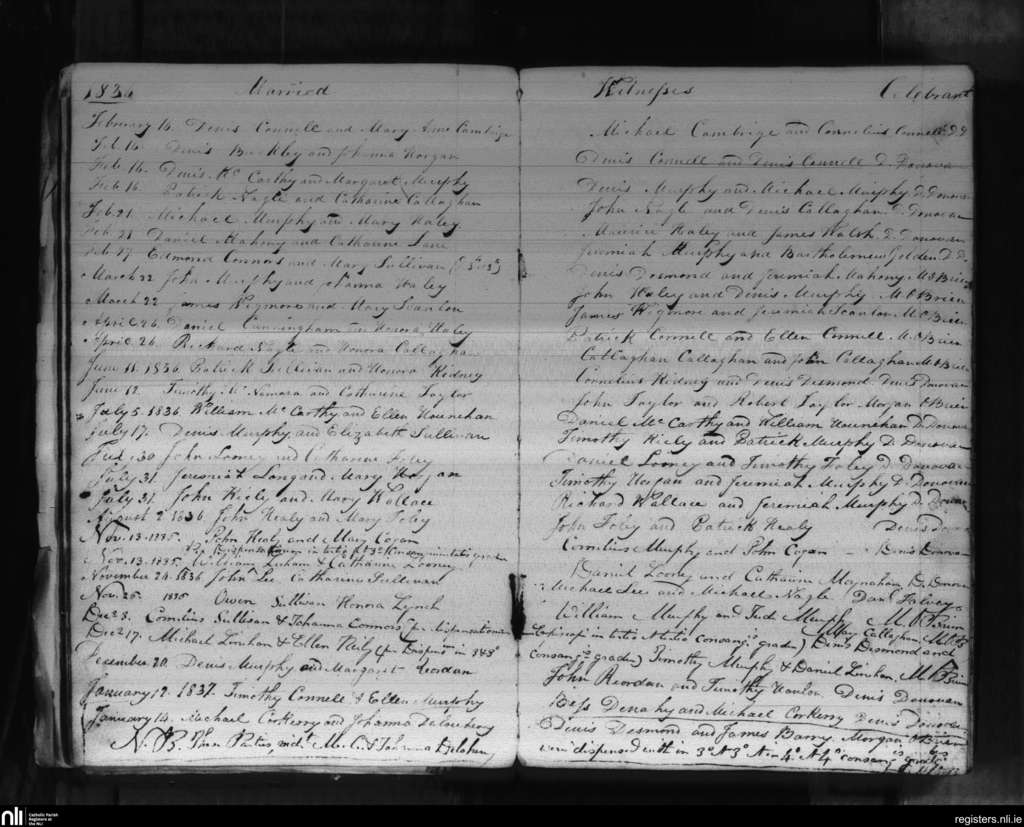 1836 Married
February 16. Denis Connell and Mary Anne Cambrige
Feb. 16. Denis Buckley and Johanna Horgan
Feb 16. Denis Mc Carthy and Margaret Murphy
Feb 16 Patrick Nagle and Catharine Callaghan
Feb. 21 Michael Murphy and Mary Haley
Feb. 21 Daniel Mahony and Catharine Lane
Feb. 27 Edmond Connors and Mary Sullivan
March 22 John Murphy and Johanna Haley
March 22 James Wigmore and Mary Scanlon
April 26 Daniel Cunningham and Honora Haley
April. 26 Richard Nagle and Honora Callaghan
June 11. 1836. Patrick Sullivan and Honora Kidney
June 12 Timothy Mc Namara and Catharine Taylor
July 5. 1836. William Mc Carthy and Ellen Hounehan
July 17. Denis Murphy and Elizabeth Sullivan
30 John Looney and Catharine Foley
July 31. Jeremiah Long and Mary Horgan
July 31 John Kiely and Mary Wallace
August 2 1836 John Healy and Mary Foley
Nov. 13. 1835. John Healy and Mary Cogan
Dispensationem in
Nov. 13. 1835. William Linham & Catharine Looney
November 24. 1836 John Lee Catharine Sullivan
Nov. 25. 1835 Owen Sullivan Honora Lynch
Dec 8. Cornelius Sullivan & Johanna Connors (per dispensationem
Dec 17. Michael Linhan & Ellen Kiely in 3 & 3°
December 20. Denis Murphy and Margaret Reordan
January 12. 1837. Timothy Connell & Ellen Murphy
January 14. Michael Corkerry and Johanna
N.B. & Johanna
Witnesses Celebrant
Michael Cambrige and Cornelius Connell D. D
Denis Connell and Denis Connell D. Donovan
Denis Murphy and Michael Murphy D. Donovan
John Nagle and Denis Callaghan D. Donovan
Maurice Haley and James Walsh D. Donovan
Jeremiah Murphy and Bartholemew Golden D. D.
Denis Desmond and Jeremiah Mahony M. O Brien
John Haley and Denis Murphy M. O Brien
James Wigmore and Jeremiah Scanlon M. O Brien
Patrick Connell and Ellen Connell M. O Brien
Callaghan Callaghan and John Callaghan M. O Brien
Cornelius Kidney and Denis Desmond Denis Donovan
John Taylor and Robert Taylor Morgan O Brien
Daniel Mc Carthy and William Hounehan D. Donovan
Timothy Kiely and Patrick Murphy D. Donovan
Daniel Looney and Timothy Foley D. Donovan
Timothy Horgan and Jeremiah Murphy D. Donovan
Richard Wallace and Jeremiah Murphy D. Donovan
John Foley and Patrick Healy Denis Donovan
Cornelius Murphy and John Cogan — Denis Donovan
Daniel Looney and Catharine Moynahan D. Donovan
Michael Lee and Michael Nagle Danl Falvey
William Murphy and Jud Murphy M. O Brien
Episcopi in tertio Mary Callaghan M. O B
consang. gradu) Denis Desmond and
Timothy Murphy & Daniel Linhan, M. O Brien
John Reordan and Timothy Hanlon. Denis Donovan
Bess Denahy and Michael Corkerry Denis Donovan
Denis Desmond and James Barry. Morgan O Brien
were dispensed with in 3° & 3° 4° & 4° consang.
nli
Catholic Parish
Registers at
the NLI
registers.nli.ie